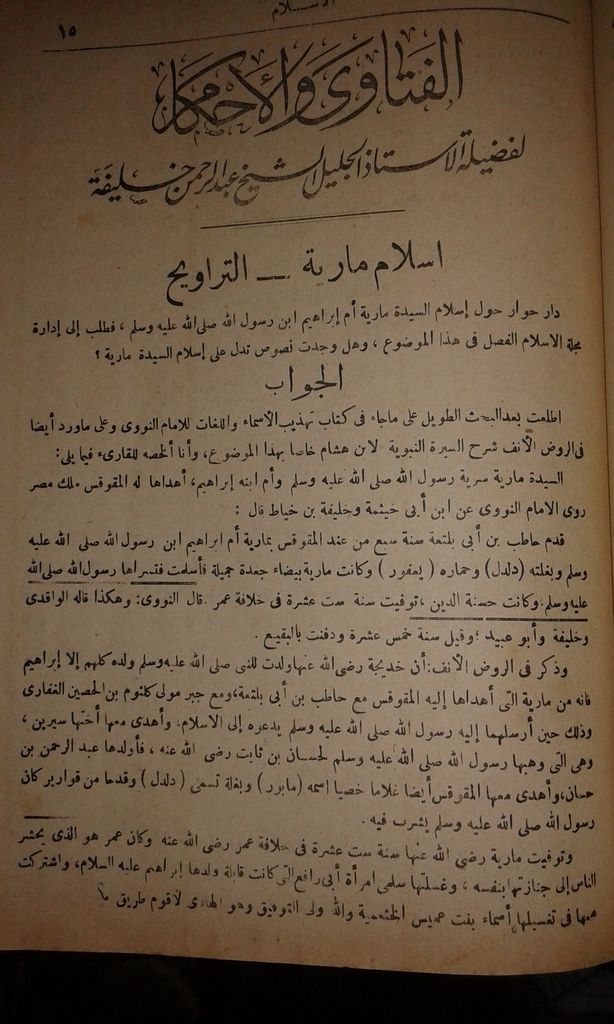 الاسلام
١٥
الفتاوى والأحكام
لفضيلة الاستاذ الجليل الشيخ عبد الرحمن خليفة
اسلام مارية — التراويح
دار حوار حول إسلام السيدة مارية أم إبراهيم ابن رسول الله صلى الله عليه وسلم ، فطلب إلى إدارة
مجلة الاسلام الفصل فى هذا الموضوع ، وهل وجدت نصوص تدل على إسلام السيدة مارية ؟
الجواب
اطلعت بعد البحث الطويل على ماجاء فى كتاب تهذيب الأسماء واللغات للامام النووى وعلى ماورد أيضا
فى الروض الأنف شرح السيرة النبوية لابن هشام خاصا بهذا الموضوع، وأنا ألخصه للقارىء فيما يلى:
السيدة مارية سرية رسول الله صلى الله عليه وسلم وأم ابنه إبراهيم، أهداها له المقوقس ملك مصر
روى الامام النووى عن ابن أبى خيثمة وخليفة بن خياط قال :
قدم حاطب بن أبى بلتعة سنة سبع من عند المقوقس بمارية أم ابراهيم ابن رسول الله صلى الله عليه
وسلم وبغلته (دلدل) وحماره ( يعفور ) وكانت مارية بيضاء جعدة جميلة فأسلمت فتسراها رسول الله صلى الله
عليه وسلم، وكانت حسنة الدين ، توفيت سنة ست عشرة فى خلافة عمر . قال النووى: وهكذا قاله الواقدى
وخليفة وأبو عبيد ؛ وقيل سنة خمس عشرة ودفنت بالبقيع .
وذكر فى الروض الأنف: أن خديجة رضى الله عنها ولدت للنبى صلى الله عليه وسلم ولده كلهم إلا إبراهيم
فانه من مارية التى أهداها إليه المقوقس مع حاطب بن أبى بلتعة، ومع جبر مولى كلثوم بن الحصين الغفارى
وذلك حين أرسلهما إليه رسول الله صلى الله عليه وسلم يدعوه إلى الاسلام. وأهدى معها أختها سيرين ،
وهى التى وهبها رسول الله صلى الله عليه وسلم لحسان بن ثابت رضى الله عنه ، فأولدها عبد الرحمن بن
حسان، وأهدى معها المقوقس أيضا غلاما خصيا اسمه (مابور) وبغلة تسمى (دلدل) وقدحا من قوارير كان
رسول الله صلى الله عليه وسلم يشرب فيه .
وتوفيت مارية رضى الله عنها سنة ست عشرة فى خلافة عمر رضى الله عنه وكان عمر هو الذى يحشر
الناس إلى جنازتها بنفسه ، وغسلتها سلمى امرأة أبى رافع التى كانت قابلة ولدها إبراهيم عليه السلام، واشتركت
معها فى تغسيلها أسماء بنت عميس الخثعمية والله ولى التوفيق وهو الهادى لأقوم طريق